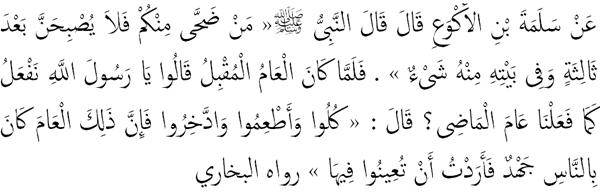 عَنْ سَلَمَةَ بْنِ الأَكْوَعِ قَالَ قَالَ النَّبِىُّ ﷺ « مَنْ ضَحَّى مِنْكُمْ فَلاَ يُصْبِحَنَّ بَعْدَ
ثَالِثَةٍ وَفِى بَيْتِهِ مِنْهُ شَىْءٌ » . فَلَمَّا كَانَ الْعَامُ الْمُقْبِلُ قَالُوا يَا رَسُولَ اللَّهِ نَفْعَلُ
كَمَا فَعَلْنَا عَامَ الْمَاضِى ؟ قَالَ : « كُلُوا وَأَطْعِمُوا وَادَّخِرُوا فَإِنَّ ذَلِكَ الْعَامَ كَانَ
بِالنَّاسِ جَهْدٌ فَأَرَدْتُ أَنْ تُعِينُوا فِيهَا » رواه البخاري